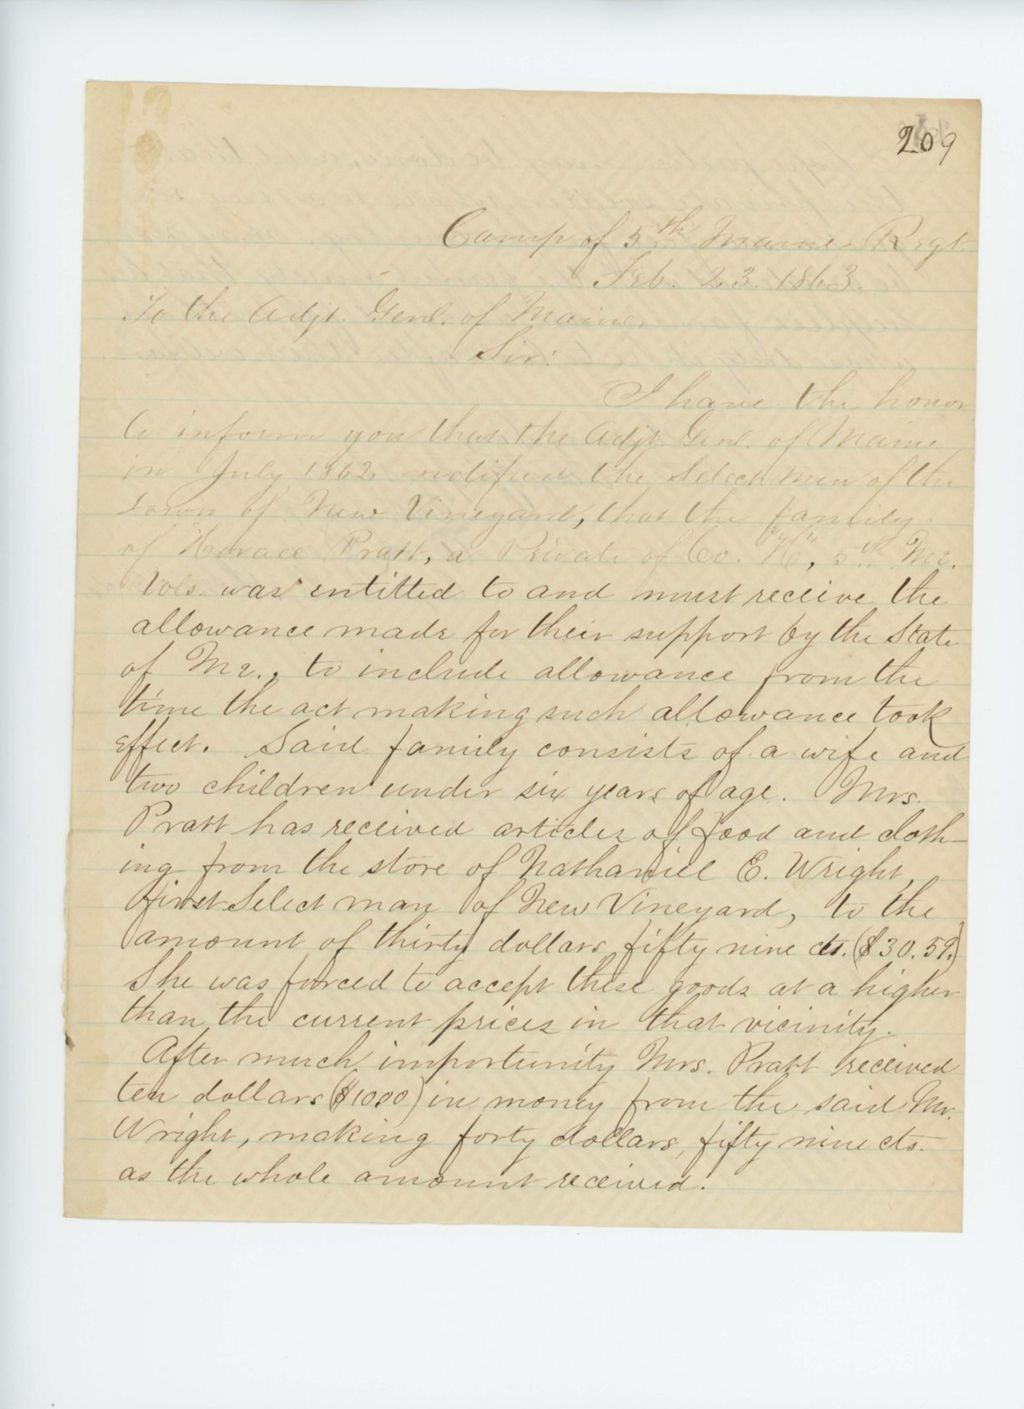 209
Camp of 5th Maine Regt.
Feb. 23. 1863.
To the Adjt. Genl. of Maine,
Sir:
I have the honor
to inform you that the Adjt. Genl. of Maine
in July 1862 notified the Select men of the
Town of New Vineyard, that the family
of Horace Pratt, a Private of Co. "K", 5th Me.
Vols. was entitled to and must receive the
allowance made for their support by the State
of Me., to include allowance from the
time the act making such allowance took
effect. Said family consists of a wife and
two children under six years of age. Mrs.
Pratt has received articles of food and cloth-
ing from the store of Nathaniel E. Wright,
first Select man of New Vineyard, to the
amount of thirty dollars, fifty nine cts. ($30.59.)
She was forced to accept these goods at a higher
than the current prices in that vicinity.
After much importunity Mrs. Pratt received
ten dollars ($10 00) in money from the said Mr.
Wright, making forty dollars, fifty nine cts.
as the whole amount received.